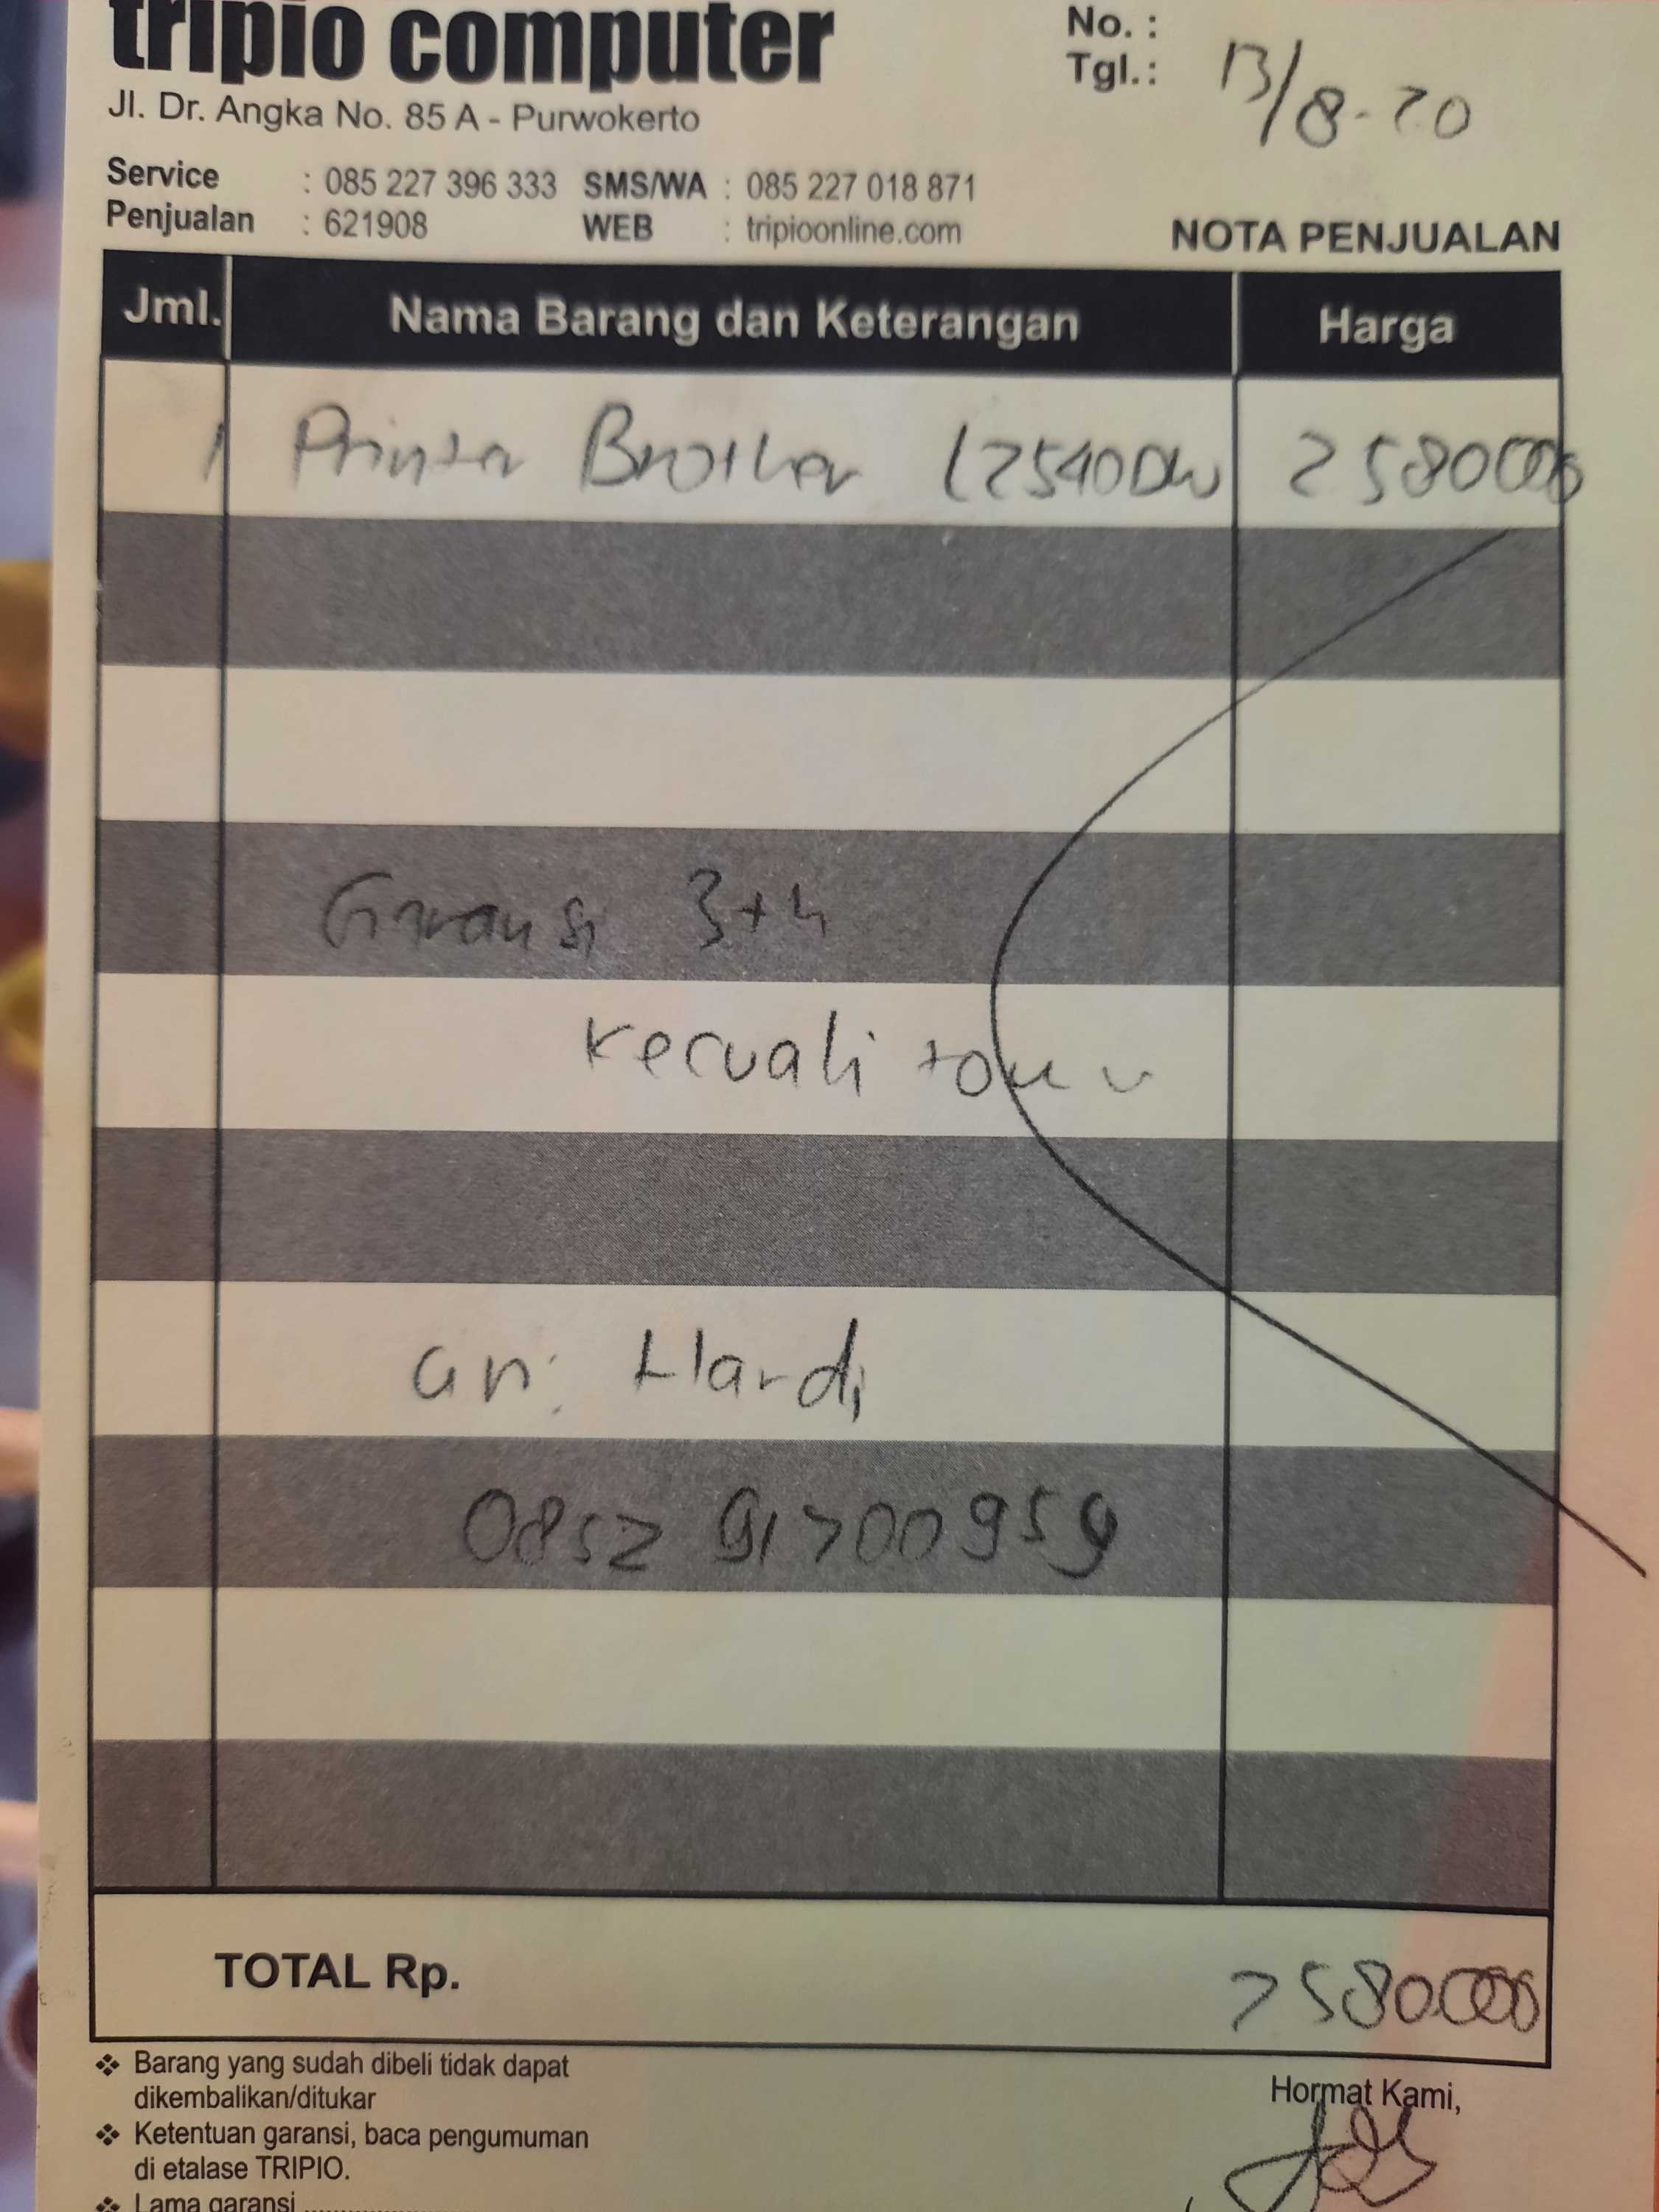 tripio computer
Jl. Dr. Angka No. 85 A - Purwokerto
No. :
Tgl. : 13/8-20
Service : 085 227 396 333 SMS/WA : 085 227 018 871
Penjualan : 621908 WEB : tripioonline.com
NOTA PENJUALAN
Jml. Nama Barang dan Keterangan Harga
1 Printer Brother L2540DW 2580000
Garansi 3+4
kecuali toner
an. Hardi
0852 91700959
TOTAL Rp. 2580000
❖ Barang yang sudah dibeli tidak dapat
dikembalikan/ditukar
❖ Ketentuan garansi, baca pengumuman
di etalase TRIPIO.
❖ Lama garansi ........................
Hormat Kami,